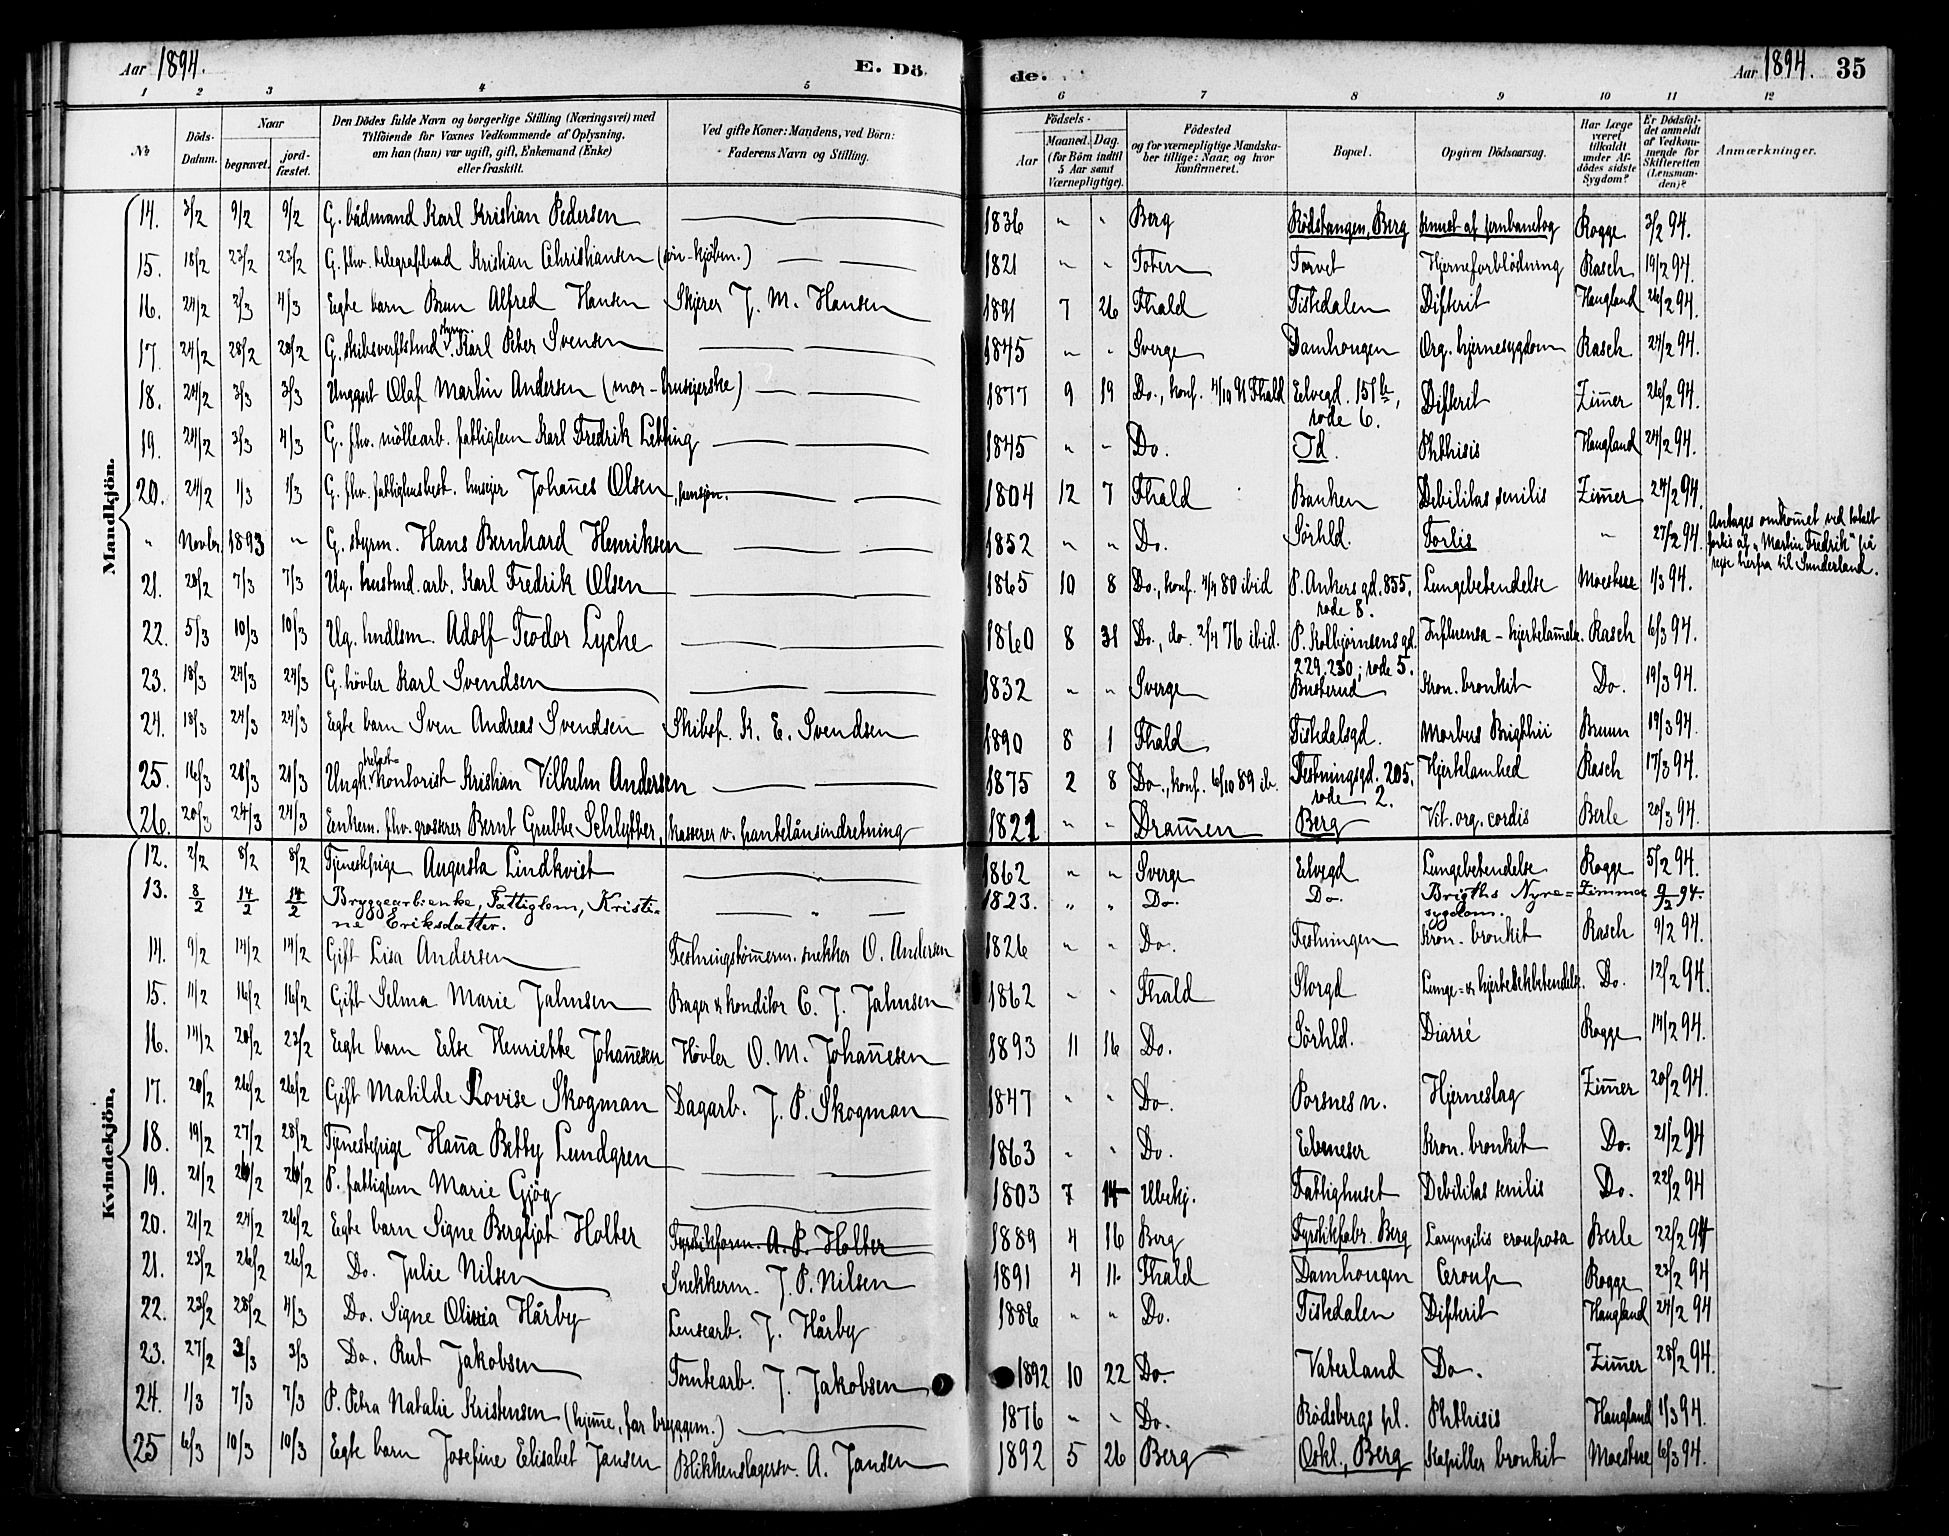 Aar 1894. E. Dö- de. Aar 1894. 35
1 2 3 4 5 6 7 8 9 10 11 12
No. Döds-Datum. Naar begravet. jord-fæstet. Den Dödes fulde Navn og borgerlige Stilling (Næringsvei) med Tilföiende for Voxnes Vedkommende af Oplysning, om han (hun) var ugift, gift, Enkemand (Enke) eller fraskilt. Ved gifte Koner: Mandens, ved Börn: Faderens Navn og Stilling. Födsels- Aar Maaned. Dag. (for Börn indtil 5 Aar samt Værnepligtige). Födested og for værnepligtige Mandskaber tillige: Naar, og hvor konfirmeret. Bopæl. Opgiven Dödsaarsag. Har Læge været tilkaldt under Afdödes sidste Sygdom? Er Dödsfaldet anmeldt af Vedkommende for Skifteretten (Lensmanden)? Anmærkninger.
Mandkjön.
14. 3/2 9/2 9/2 G. bådmand Karl Kristian Pedersen 1836 " " Berg Rödsbangen, Berg knust af jernbanetog Rogge 3/2 94.
15. 18/2 23/2 23/2 G. fhv. telegrafbud Kristian Christiansen 1821 " " Toten Torvet Hjerneforblödning Rasch 19/2 94.
16. 24/2 2/3 4/3 Egte barn Brun Alfred Hansen Skjerer J. M. Hansen 1891 7 26 Fhald Tistedalen Difterit Haugland 26/2 94.
17. 24/2 28/2 28/2 G. skibsverftstmd Karl Peter Svensen 1845 " " Sverge Damhougen Org. hjernesygdom Rasch 24/2 94.
18. 24/2 3/3 3/3 Unggut Olaf Martin Andersen (mor - husejerske) 1877 9 19 Do., konf. 4/10 91 Fhald Elvegd. 151 b, rode 6. Difterit Zimer 26/2 94.
19. 24/2 3/3 4/3 G. fhv. möllearb. fattiglem Karl Fredrik Letting 1845 " " Do. Id. Phthisis Haugland 24/2 94.
20. 24/2 1/3 1/3 G. fhv. fattighusbest. husejer Johañes Olsen, pensjon. 1804 12 7 Fhald Banken Debilitas senilis Zimer 24/2 94.
" Novbr. 1893 " G. styrm. Hans Bernhard Henriksen 1852 " " Do. Sörhld. Forlis " 27/2 94. Antages omkomet ved totalt forlis af "Martin Fredrik" på rejse herfra til Sunderland.
21. 28/2 7/3 7/3 Ug. hustmd. arb. Karl Fredrik Olsen 1865 10 8 Do., konf. 4/4 80 ibid P. Ankers gd. 855, rode 8. Lungebetendelse Moestue 1/3 94.
22. 5/3 10/3 10/3 Ug. hndlsm. Adolf Teodor Lyche 1860 8 31 Do., do. 2/4 76 ibid. P. Kolbjörnsens gd. 229.230; rode 5. Influensa - hjertelamelse. Rasch 6/3 94.
23. 18/3 24/3 24/3 G. hövler Karl Svendsen 1832 " " Sverge Busterud Kron. bronkit Do. 19/3 94.
24. 18/3 24/3 24/3 Egte barn Sven Andreas Svendsen Skibsf. K. E. Svendsen 1890 8 1 Fhald Tistedalsgd. Morbus Brigthii Bruun 19/3 94.
25. 16/3 21/3 21/3 Ungk. kontorist Kristian Vilhelm Andersen 1875 2 8 Do., konf. 6/10 89 ib. Festningsgd. 205, rode 2. Hjertelamhed Rasch 17/3 94.
26. 20/3 24/3 24/3 Enkem. fhv. grosserer Bernt Grubbe Schlytter, kasserer v. pantelånsindretning 1821 " " Dramen Berg Vit. org. cordis Berle 20/3 94.
Kvindekjön.
12. 2/2 8/2 8/2 Tjenestepige Augusta Lindkvist 1862 " " Sverge Elvegd Lungebetendelse Rogge 5/2 94.
13. 8/2 14/2 14/2 Bryggearb.enke, Fattiglem, Kristine Eriksdatter. 1823. " " Do. Do. Brigths Nyresygdom. Zimmer 9/2 94.
14. 9/2 14/2 14/2 Gift Lisa Andersen Festningstömerm. snekker O. Andersen 1826 " " Do. Festningen Kron. bronkit Rasch 9/2 94.
15. 11/2 16/2 16/2 Gift Selma Marie Jahnsen Bager & konditor C. J. Jahnsen 1862 " " Fhald Storgd Lunge- & hjertesekbetendelse. Do. 12/2 94.
16. 14/2 20/2 23/2 Egte barn Else Henriette Johañesen Hövler O. M. Johañesen 1893 11 16 Do. Sörhld. Diarré Rogge 14/2 94.
17. 20/2 26/2 26/2 Gift Matilde Lovise Skogman Dagarb. J. P. Skogman 1847 " " Do. Porsnes n. Hjerneslag Zimer 20/2 94.
18. 19/2 27/2 28/2 Tjenestepige Haña Betty Lundgren 1863 " " Do. Ebeneser Kron. bronkit Do. 21/2 94
19. 21/2 26/2 26/2 P. fattiglem Marie Gjög 1803 7 14 Ubekj. Fattighuset Debilitas senilis Do. 22/2 94
20. 21/2 24/2 26/2 Egte barn Signe Bergljot Holter Fyrstikform. A. P. Holter 1889 4 16 Berg Fyrstikfabr. Berg Laryngitis crouposa Berle 22/2 94
21. 23/2 26/2 26/2 Do. Julie Nilsen Snekkerm. J. P. Nilsen 1891 4 11 Fhald Damhougen Croup Rogge 23/2 94
22. 23/2 28/2 4/3 Do. Signe Olivia Hårby Lensearb. J. Hårby 1886 " " Do. Tistedalen Difterit Haugland 24/2 94
23. 27/2 3/3 3/3 Do. Rut Jakobsen Tomtearb. J. Jakobsen 1892 10 22 Do. Vaterland Do. Zimer 28/2 94.
24. 1/3 7/3 7/3 P. Petra Natalie Kristensen (hjeme, far bryggem.) 1876 " " Do. Rödsbergs pl. Phthisis Haugland 1/3 94.
25 6/3 10/3 10/3 Egte barn Josefine Elisabet Jansen Blikkenslagersv. A. Jansen 1892 5 26 Berg Oskl., Berg Kapillær bronkit Moestue 6/3 94.